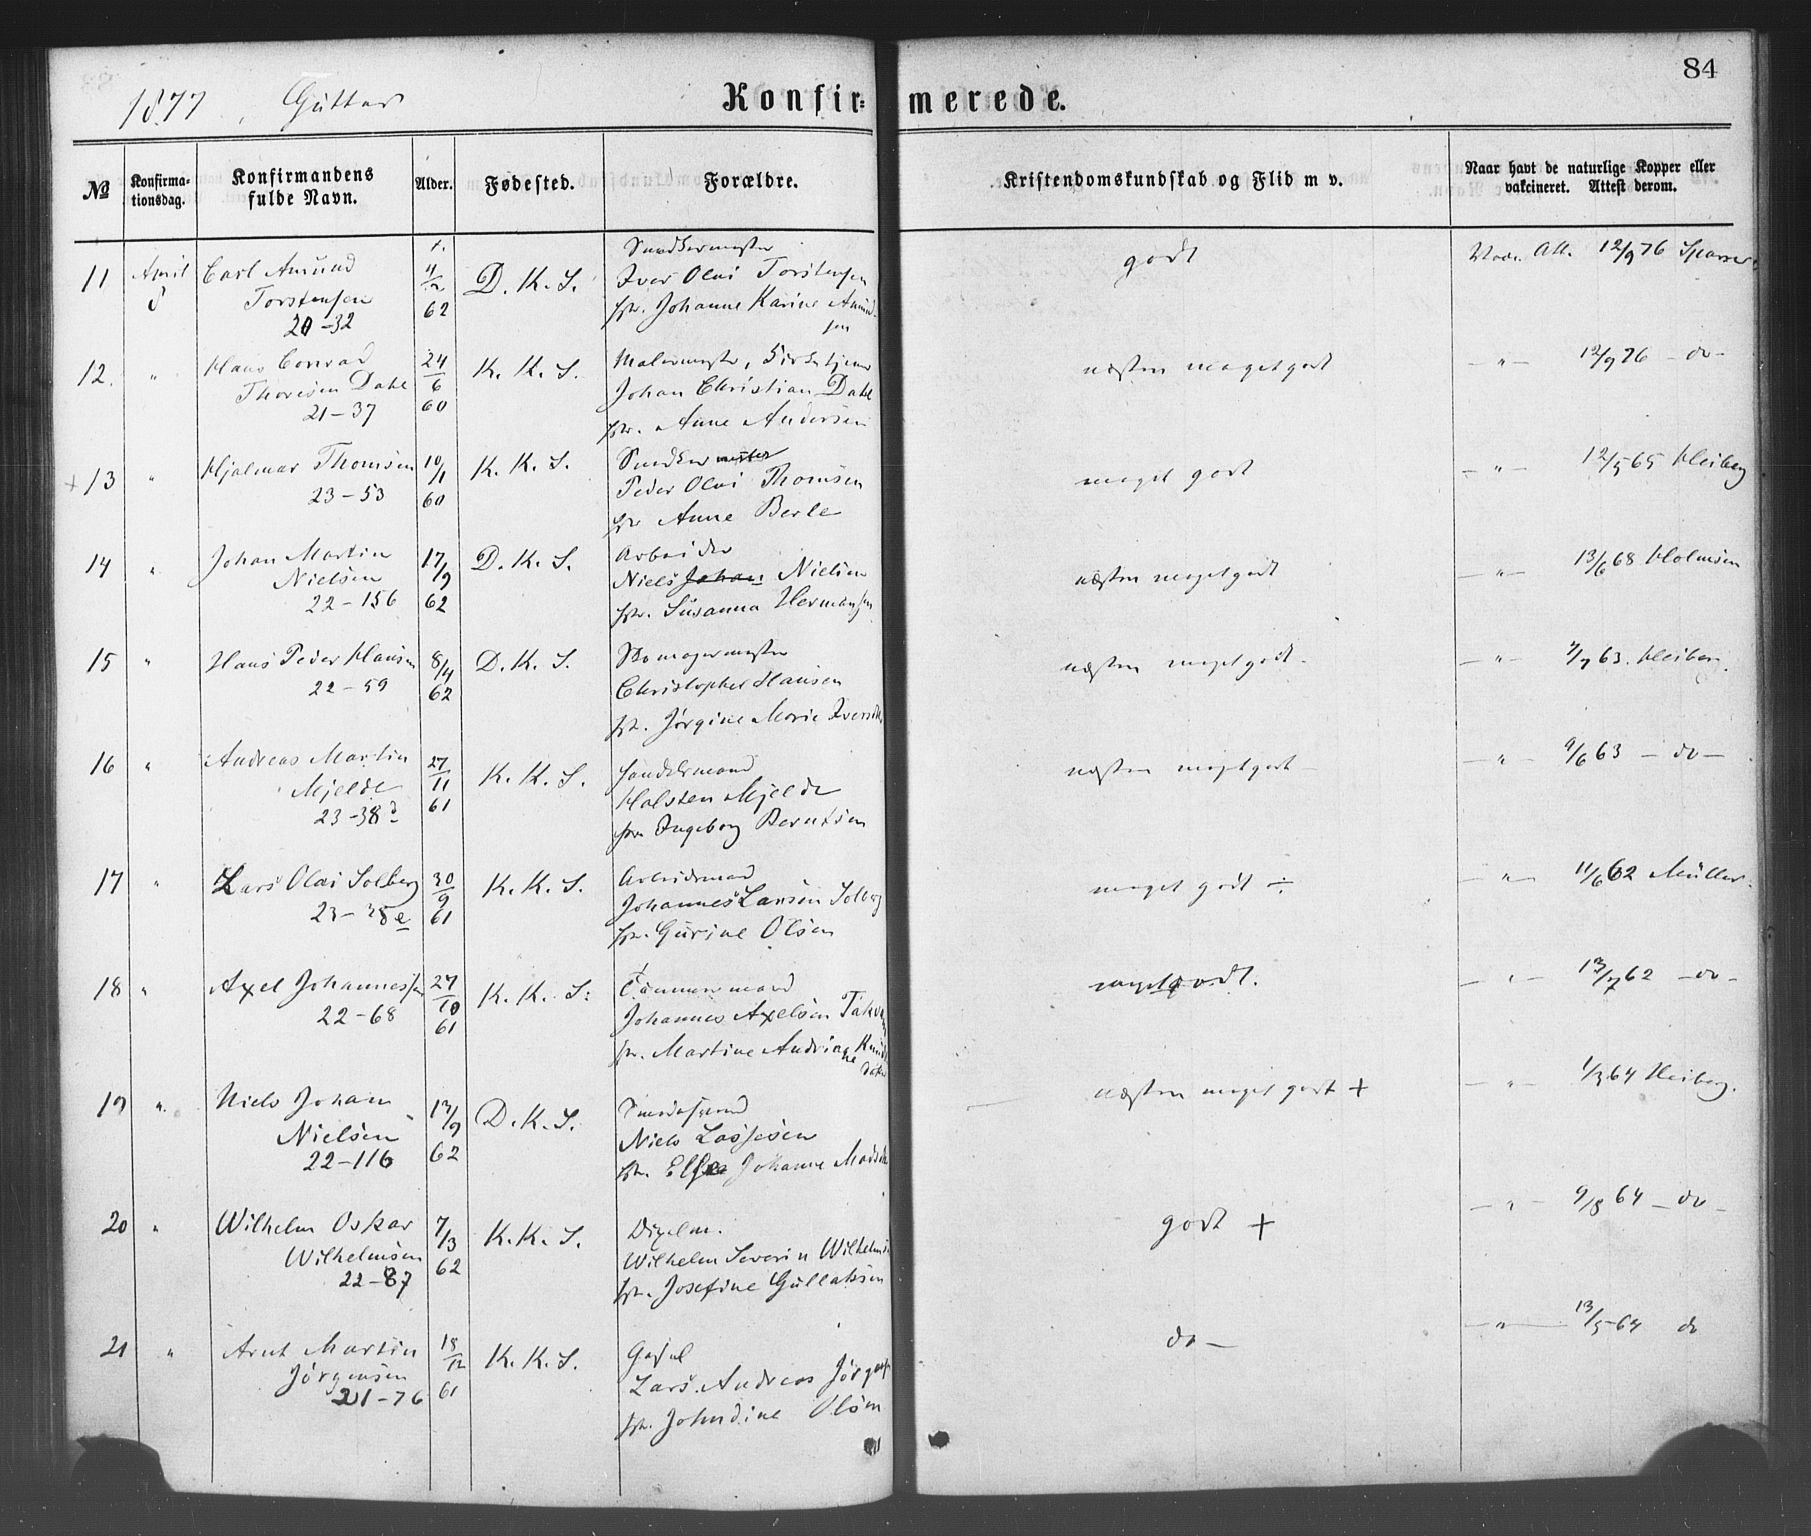 1877, Gutter
Konfir=merede.
84
No
Konfirma-tionsdag.
Konfirmandens fulde Navn.
Alder.
Fødested.
Forældre.
Kristendomskundskab og Flid m v.
Naar havt de naturlige Kopper eller vakcineret. Attest derom.
11 April 8 Carl Amund Torstensen 20-32
4/2 62
D. K. S.
Snedkermester
Iver Olai Torstensen
Johanne Karine Amundsen
godt
Att. 12/9 76
12. " Hans Conrad Thoresen Dahl 21-37
24/6 60
K. K. S.
Malermester,
Johan Christian Dahl
Anne Andersen
næsten meget godt
- " - 12/9 76 - do -
+ 13 " Hjalmar Thomsen 23-53
10/1 60
K. K. S.
Snedkermester
Peder Olai Thomsen
Anne Berle
meget godt
- " - 12/5 65 Heiberg
14 " Johan Martin Nielsen 22-156
17/9 62
D. K. S.
Arbeider
Niels Johan Nielsen
Susanna Hermansen
næsten meget godt
- " - 13/6 68 Holmsen
15 " Hans Peder Hansen 22-59
8/4 62
D. K. S.
Skomagermester
Christopher Hansen
Jørgine Marie
næsten meget godt -
- " - 7/7 63. Heiberg.
16 " Andreas Martin Mjelde 23-38d
27/11 61
K. K. S.
Handelsmand
Halsten Mjelde
Ingeborg Berntsen
næsten meget godt -
- " - 9/6 63 - do -
17 " Lars Olai Solberg 23-38e
30/9 61
K. K. S.
Arbeidsmand
Johannes Larsen Solberg
Gurine Olsen
meget godt ÷
- " - 11/6 62 Müller.
18 " Axel Johannessen 22-68
27/10 61
K. K. S.
Tømmermand
Johannes Axelsen
Martine Andriane
meget godt.
- " - 13/7 62 - do -
19 " Niels Johan Nielsen 22-116
13/9 62
D. K. S.
Niels Lassesen
Johanne
næsten meget godt +
- " - 1/3 64 Heiberg.
20 " Wilhelm Oskar Wilhelmsen 22-87
7/3 62
K. K. S.
Wilhelm Severin Wilhelmsen
Josefine Gullaksen
godt +
- " - 9/8 64 - do -
21 " Arnt Martin Jørgensen 21-76
18/12 61
K. K. S.
Lars Andreas
Johndine Olsen
do -
- " - 13/5 64 do